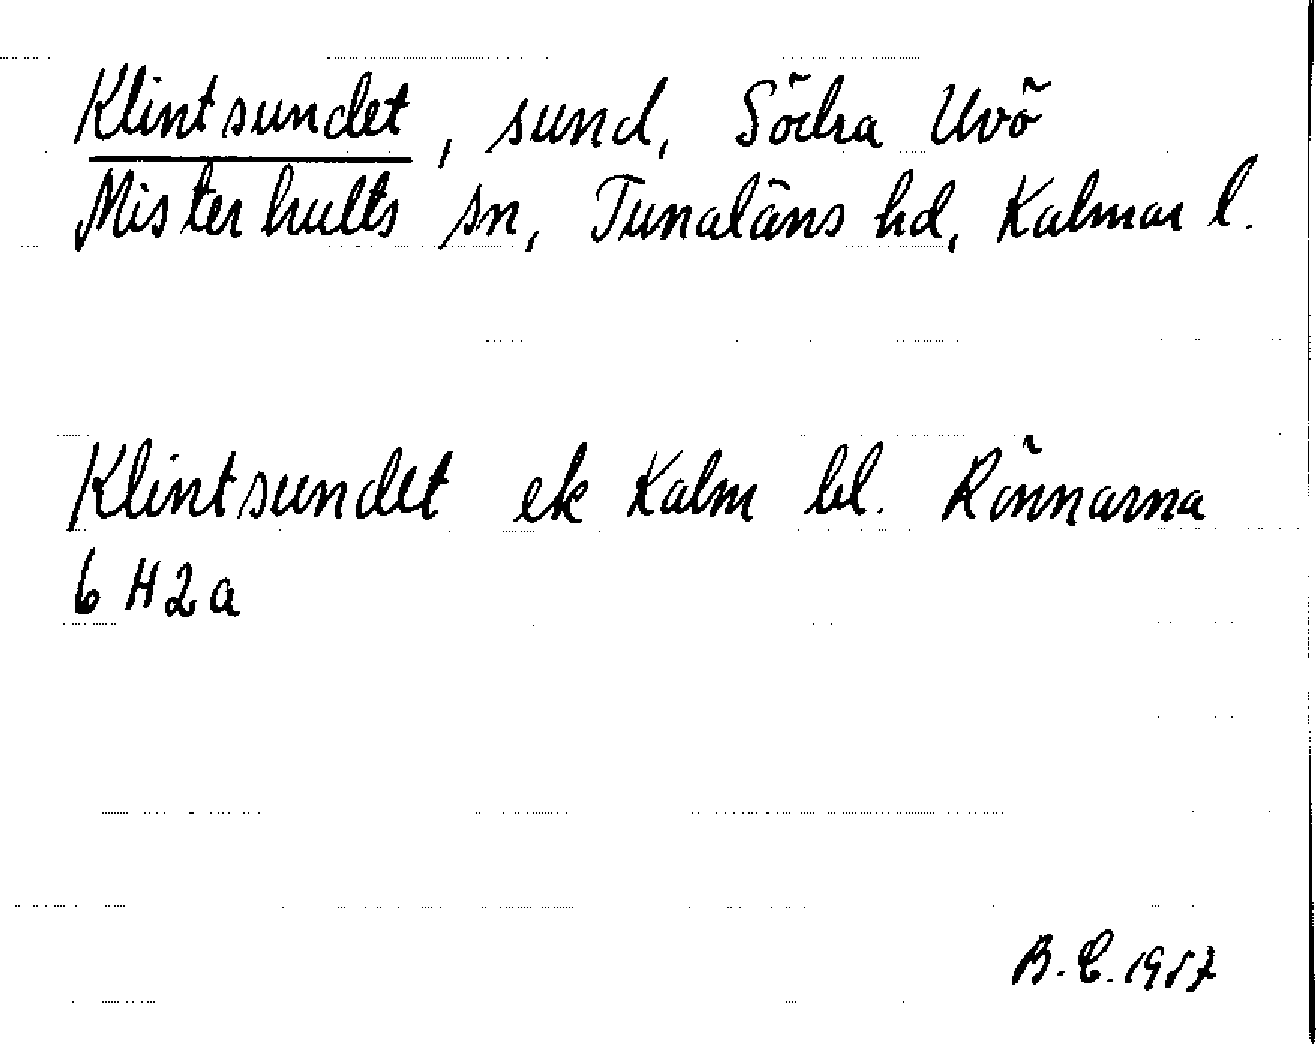 Klintsundet, sund, Södra Uvö
Misterhults sn, Tunaläns hd, Kalmar l.
Klintsundet ek Kalm bl. Rönnarna
6 H2a
B.C. 1957